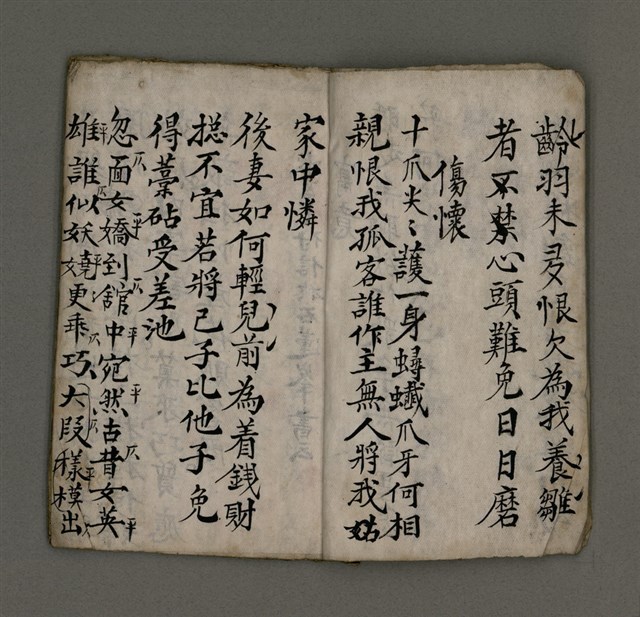 齡羽未多恨欠為我養雛
者不禁心頭難免日日磨
傷懷
十爪尖〻護一身蟳蠘爪牙何相
親恨我孤客誰作主無人將我姑
家中憐
後妻如何輕兒前為着銭財
捴不宜若將己子比他子免
得藁砧受差池
忽面女嬌到舘中宛然古昔女英
雄誰似妖嬈更乖巧大段樣模出